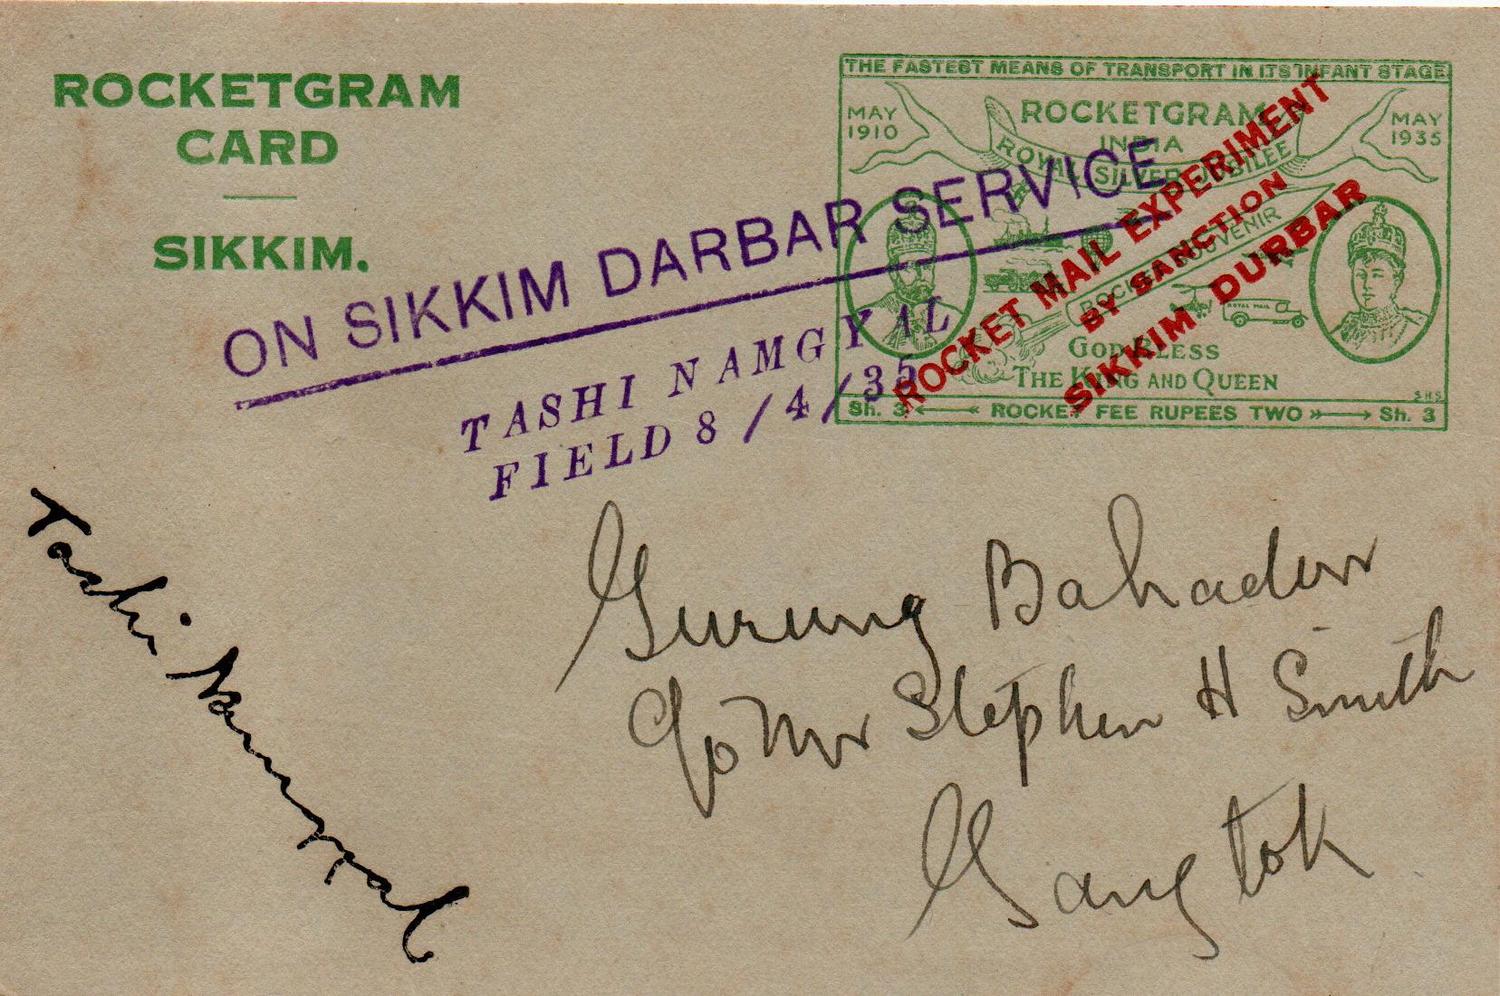 ROCKETGRAM
CARD
SIKKIM.
THE FASTEST MEANS OF TRANSPORT IN ITS INFANT STAGE
MAY
1910
ROCKETGRAM
INDIA
ROYAL SILVER JUBILEE
MAY
1935
ROCKET SOUVENIR
ROYAL MAIL
GOD BLESS
THE KING AND QUEEN
SHS
Sh. 3 ROCKET FEE RUPEES TWO Sh. 3
ROCKET MAIL EXPERIMENT
BY SANCTION
SIKKIM. DURBAR
ON SIKKIM DARBAR SERVICE
TASHI NAMGYAL
FIELD 8/4/35
Tashi Namgyal
Gurung Bahadur
c/o Mr Stephen H Smith
Gangtok